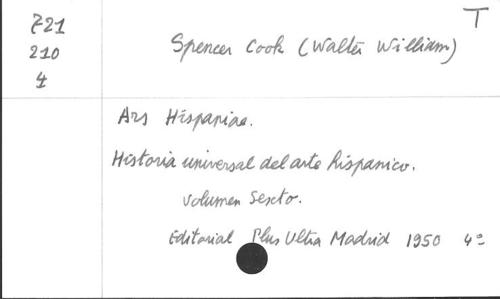 T
721
210
4
Spencer Cook (Walter William)
Ars Hispaniae.
Historia universal del arte hispanico.
Volumen Sexto.
Editorial Plus Ultra Madrid 1950 4º